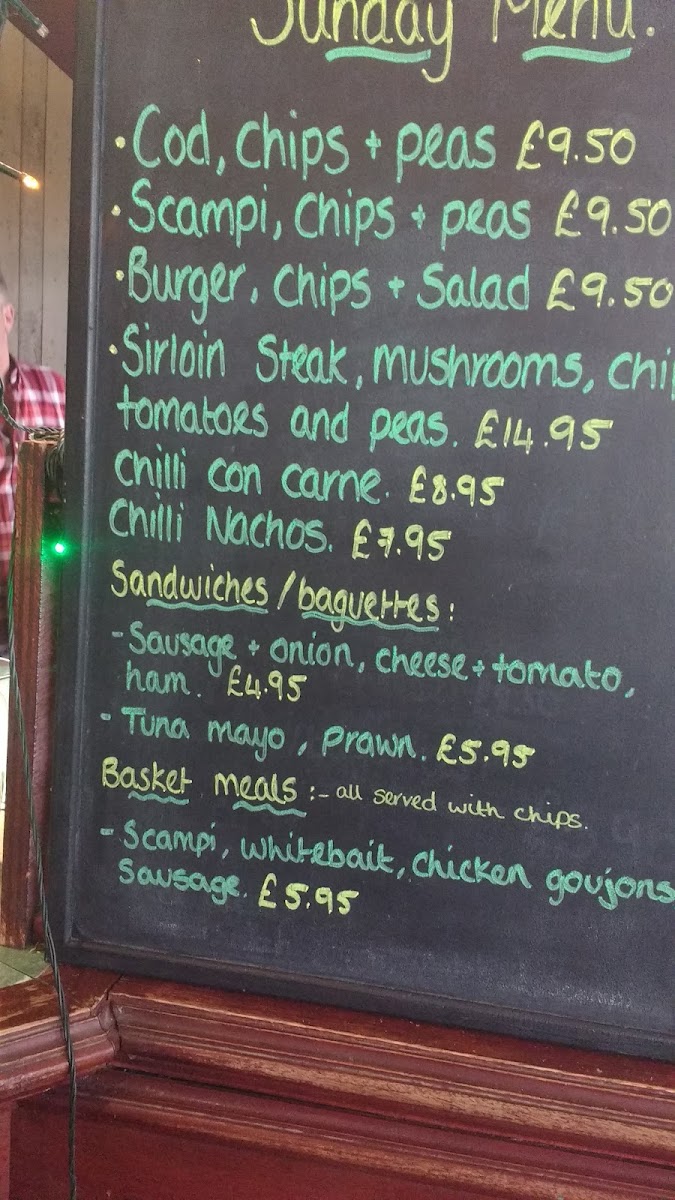 Sunday Menu.
• Cod, chips + peas £9.50
• Scampi, chips + peas £9.50
• Burger, chips + Salad £9.50
• Sirloin Steak, mushrooms, chi
tomatoes and peas. £14.95
Chilli con carne. £8.95
Chilli Nachos. £7.95
Sandwiches / baguettes:
- Sausage + onion, cheese + tomato,
ham. £4.95
- Tuna mayo, prawn. £5.95
Basket meals :- all served with chips.
- Scampi, whitebait, chicken goujons
Sausage. £5.95